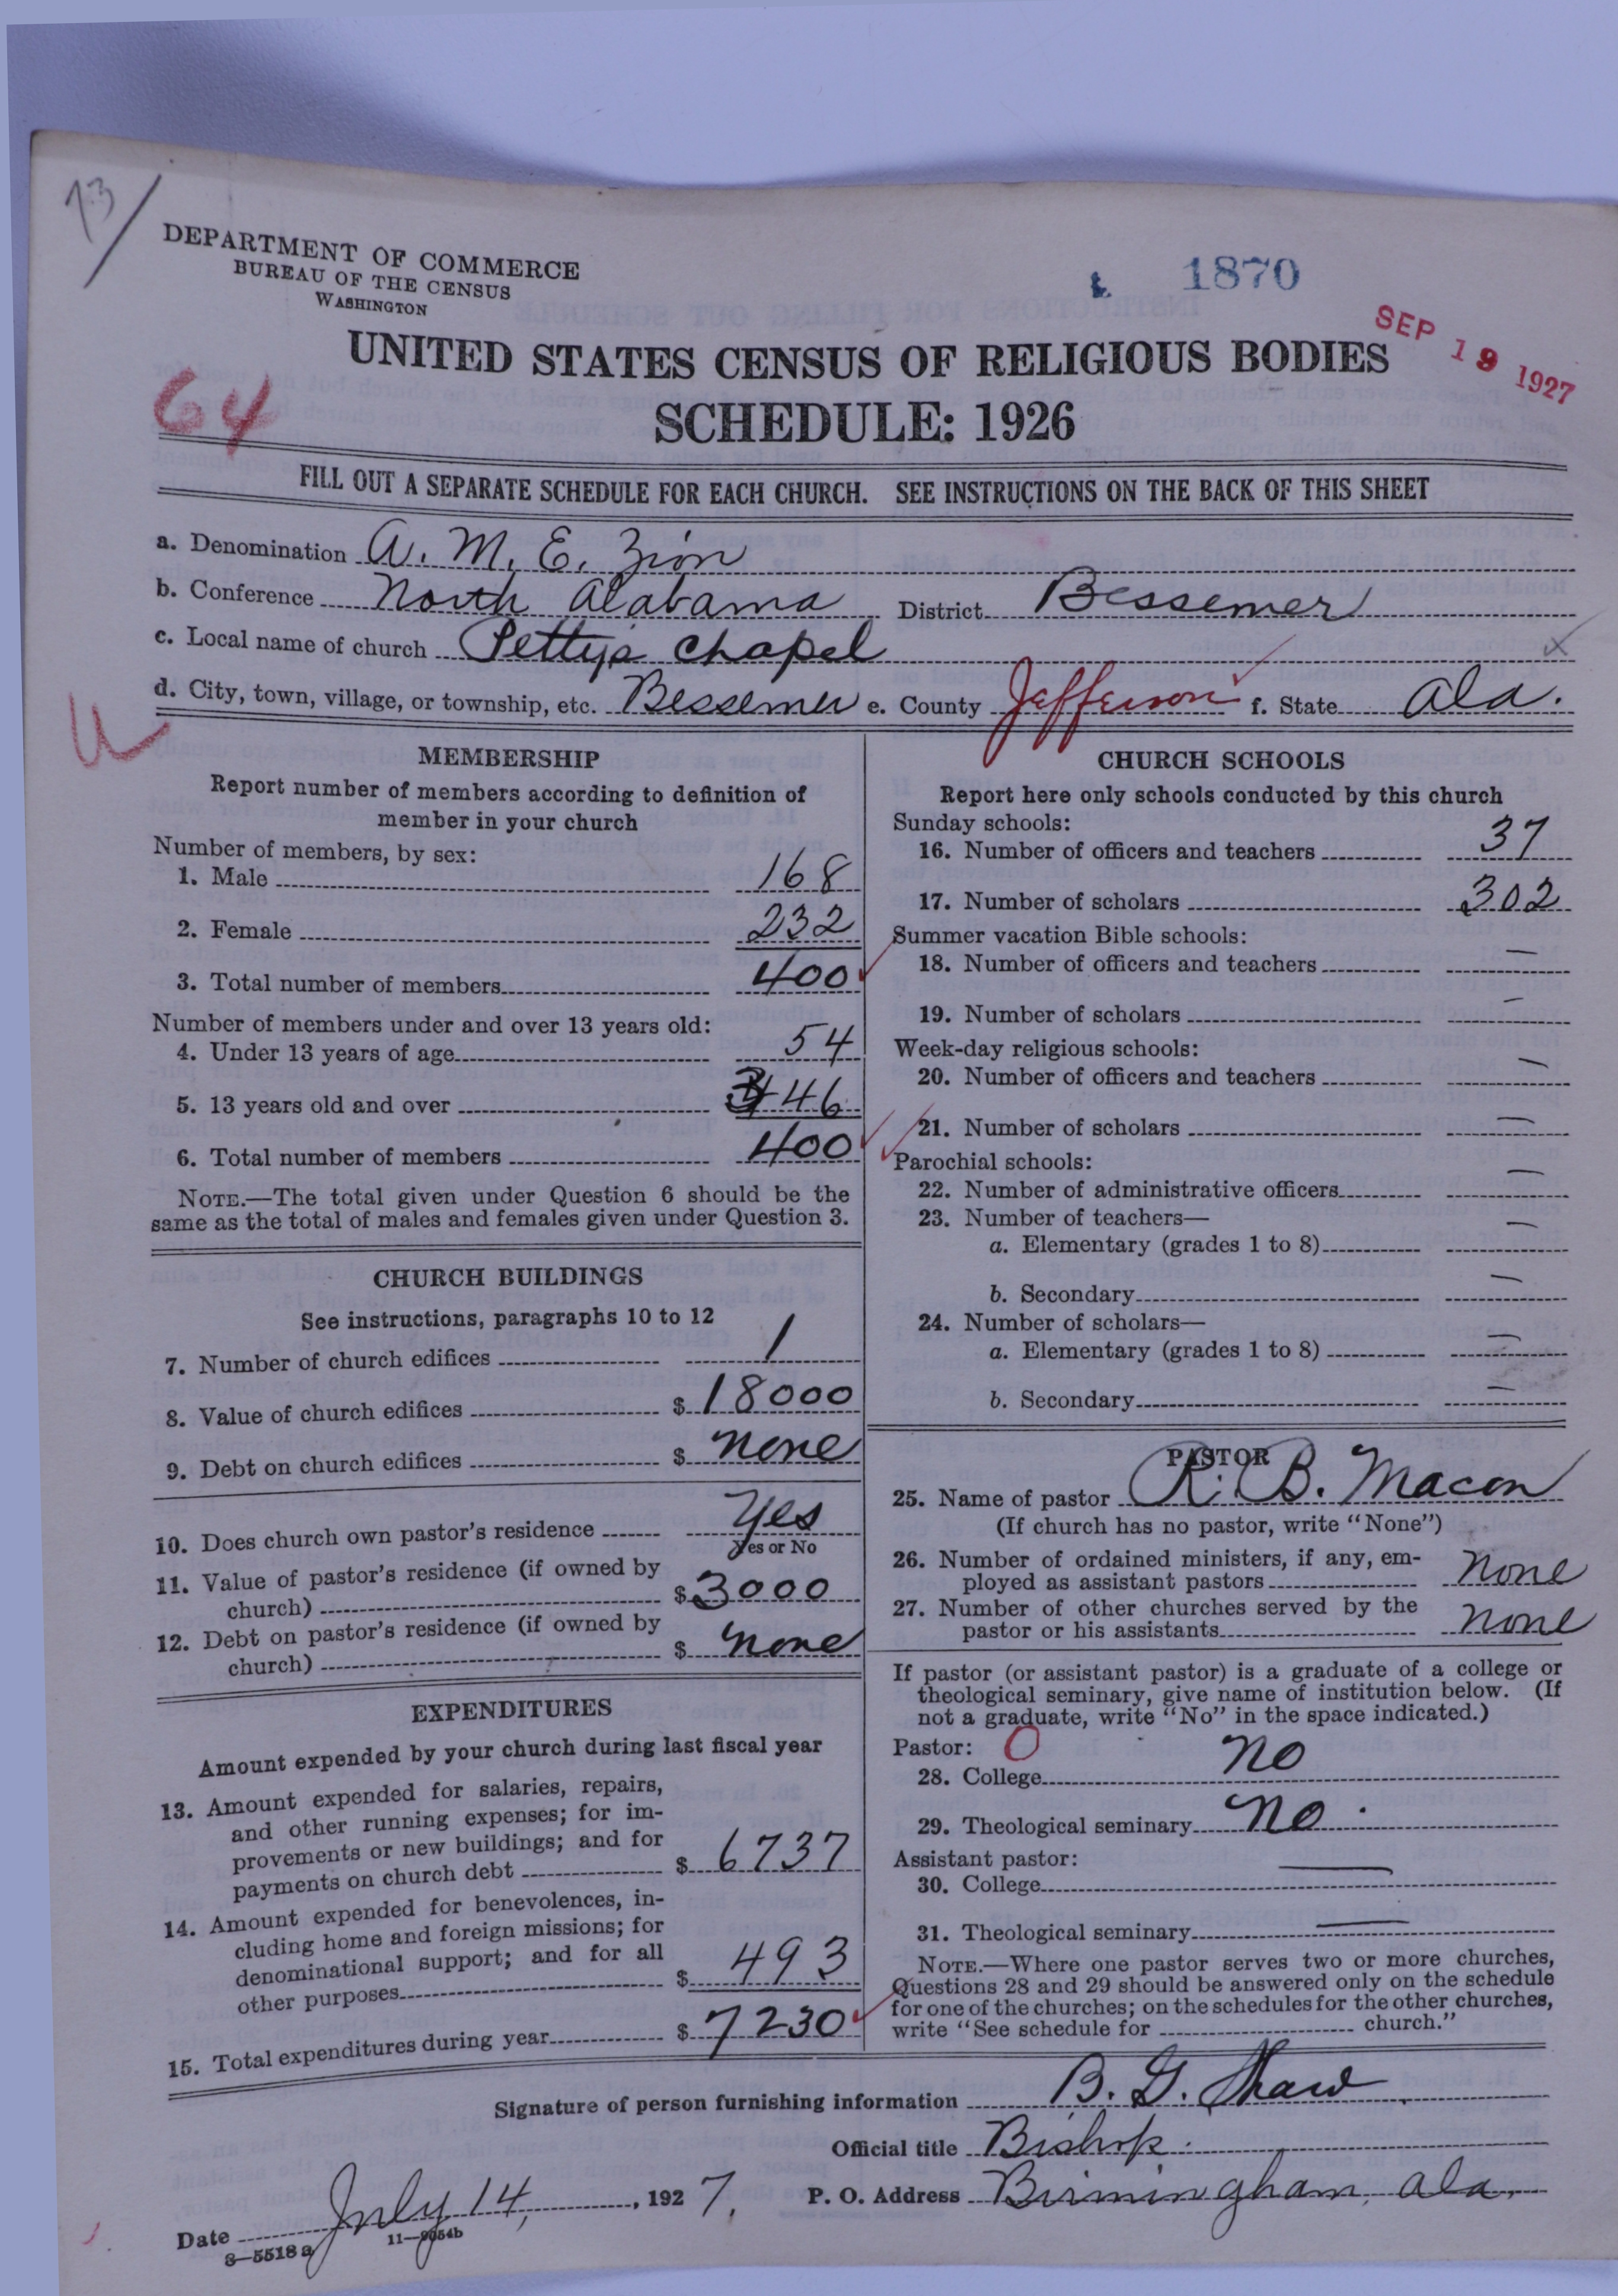 73/
DEPARTMENT OF COMMERCE
BUREAU OF THE CENSUS
WASHINGTON
1870
SEP 19 1927
UNITED STATES CENSUS OF RELIGIOUS BODIES
SCHEDULE: 1926
64
FILL OUT A SEPARATE SCHEDULE FOR EACH CHURCH. SEE INSTRUCTIONS ON THE BACK OF THIS SHEET
a. Denomination A. M. E. Zion
b. Conference North Alabama District Bessemer
c. Local name of church Petty's Chapel
d. City, town, village, or township, etc. Bessemer e. County Jefferson f. State Ala.
U
MEMBERSHIP
Report number of members according to definition of
member in your church
Number of members, by sex:
1. Male 168
2. Female 232
3. Total number of members 400
Number of members under and over 13 years old:
4. Under 13 years of age 54
5. 13 years old and over 346
6. Total number of members 400
NOTE.—The total given under Question 6 should be the
same as the total of males and females given under Question 3.
CHURCH BUILDINGS
See instructions, paragraphs 10 to 12
7. Number of church edifices 1
8. Value of church edifices $ 18000
9. Debt on church edifices $ none
10. Does church own pastor's residence Yes
Yes or No
11. Value of pastor's residence (if owned by
church) $ 3000
12. Debt on pastor's residence (if owned by
church) $ none
EXPENDITURES
Amount expended by your church during last fiscal year
13. Amount expended for salaries, repairs,
and other running expenses; for im-
provements or new buildings; and for
payments on church debt $ 6737
14. Amount expended for benevolences, in-
cluding home and foreign missions; for
denominational support; and for all
other purposes $ 493
15. Total expenditures during year $ 7230
CHURCH SCHOOLS
Report here only schools conducted by this church
Sunday schools:
16. Number of officers and teachers 37
17. Number of scholars 302
Summer vacation Bible schools:
18. Number of officers and teachers —
19. Number of scholars —
Week-day religious schools:
20. Number of officers and teachers —
21. Number of scholars —
Parochial schools:
22. Number of administrative officers —
23. Number of teachers—
a. Elementary (grades 1 to 8) —
b. Secondary —
24. Number of scholars—
a. Elementary (grades 1 to 8) —
b. Secondary —
PASTOR
25. Name of pastor R. B. Macon
(If church has no pastor, write "None")
26. Number of ordained ministers, if any, em-
ployed as assistant pastors none
27. Number of other churches served by the
pastor or his assistants none
If pastor (or assistant pastor) is a graduate of a college or
theological seminary, give name of institution below. (If
not a graduate, write "No" in the space indicated.)
Pastor: 0
28. College no
29. Theological seminary no.
Assistant pastor:
30. College —
31. Theological seminary —
NOTE.—Where one pastor serves two or more churches,
Questions 28 and 29 should be answered only on the schedule
for one of the churches; on the schedules for the other churches,
write "See schedule for church."
Signature of person furnishing information B. G. Shaw
Official title Bishop.
Date July 14, 1927. P. O. Address Birmingham, Ala.
8—5518 a 11—9054b